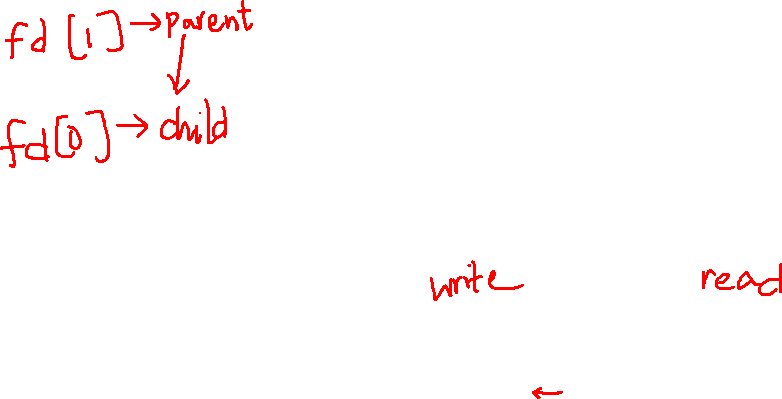 fd [1] → parent
↓
fd[0] → child
write read
←